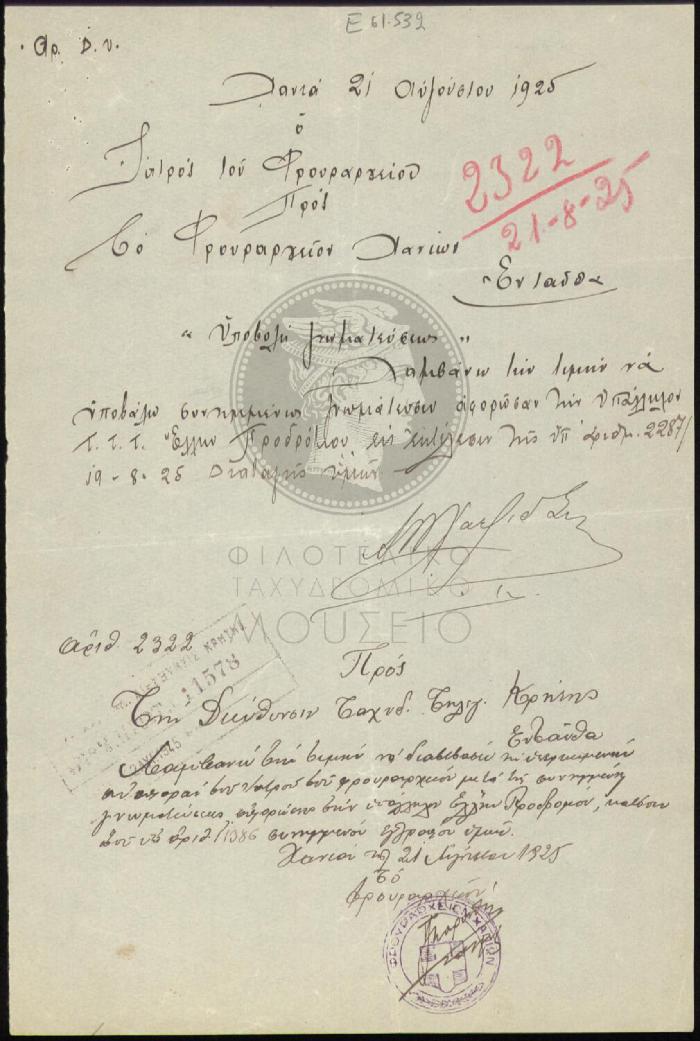 Ε 61.532
Αρ. Δ.υ.
Χανιά 21 Αὐγούστου 1925
ὁ
Ἰατρός τοῦ Φρουραρχείου
Πρός
Τό Φρουραρχεῖον Χανίων
Ἐνταῦθα
2322
21-8-25
"Ὑποβολή γνωματεύσεως"
Λαμβάνω τήν τιμήν νά
ὑποβάλω συνημμένως γνωμάτευσιν ἀφορῶσαν τήν ὑπάλληλον
Τ.Τ.Τ. Ἕλλην Προδρόμου εἰς ἐκτέλεσιν τῆς ὑπ' ἀριθμ. 2287/
19-8-25 Διαταγῆς ὑμῶν
ΦΙΛΟΤΕΛΙΚΟ
ΤΑΧΥΔΡΟΜΙΚΟ
ΜΟΥΣΕΙΟ
ἀριθ. 2322
ΚΡΗΤΗΣ
11578
Πρός
Τήν Διεύθυνσιν Ταχυδ. Τηλεγ. Κρήτης
Ἐνταῦθα
Λαμβάνω τήν τιμήν νά διαβιβάσω τήν ὑπερκειμένην
ἀναφοράν τοῦ ἰατροῦ τοῦ φρουραρχείου μετά τῆς συνημμένης
γνωματεύσεως ἀφορώσης τήν ὑπάλληλον Ἕλλην Προδρόμου, κατόπιν
τοῦ ὑπ' ἀριθ. 11386 συνημμένου ἐγγράφου ὑμῶν.
Χανιά τῇ 21 Αὐγούστου 1925
Τό
Φρουραρχεῖον
ΦΡΟΥΡΑΡΧΕΙΟΝ ΧΑΝΙΩΝ